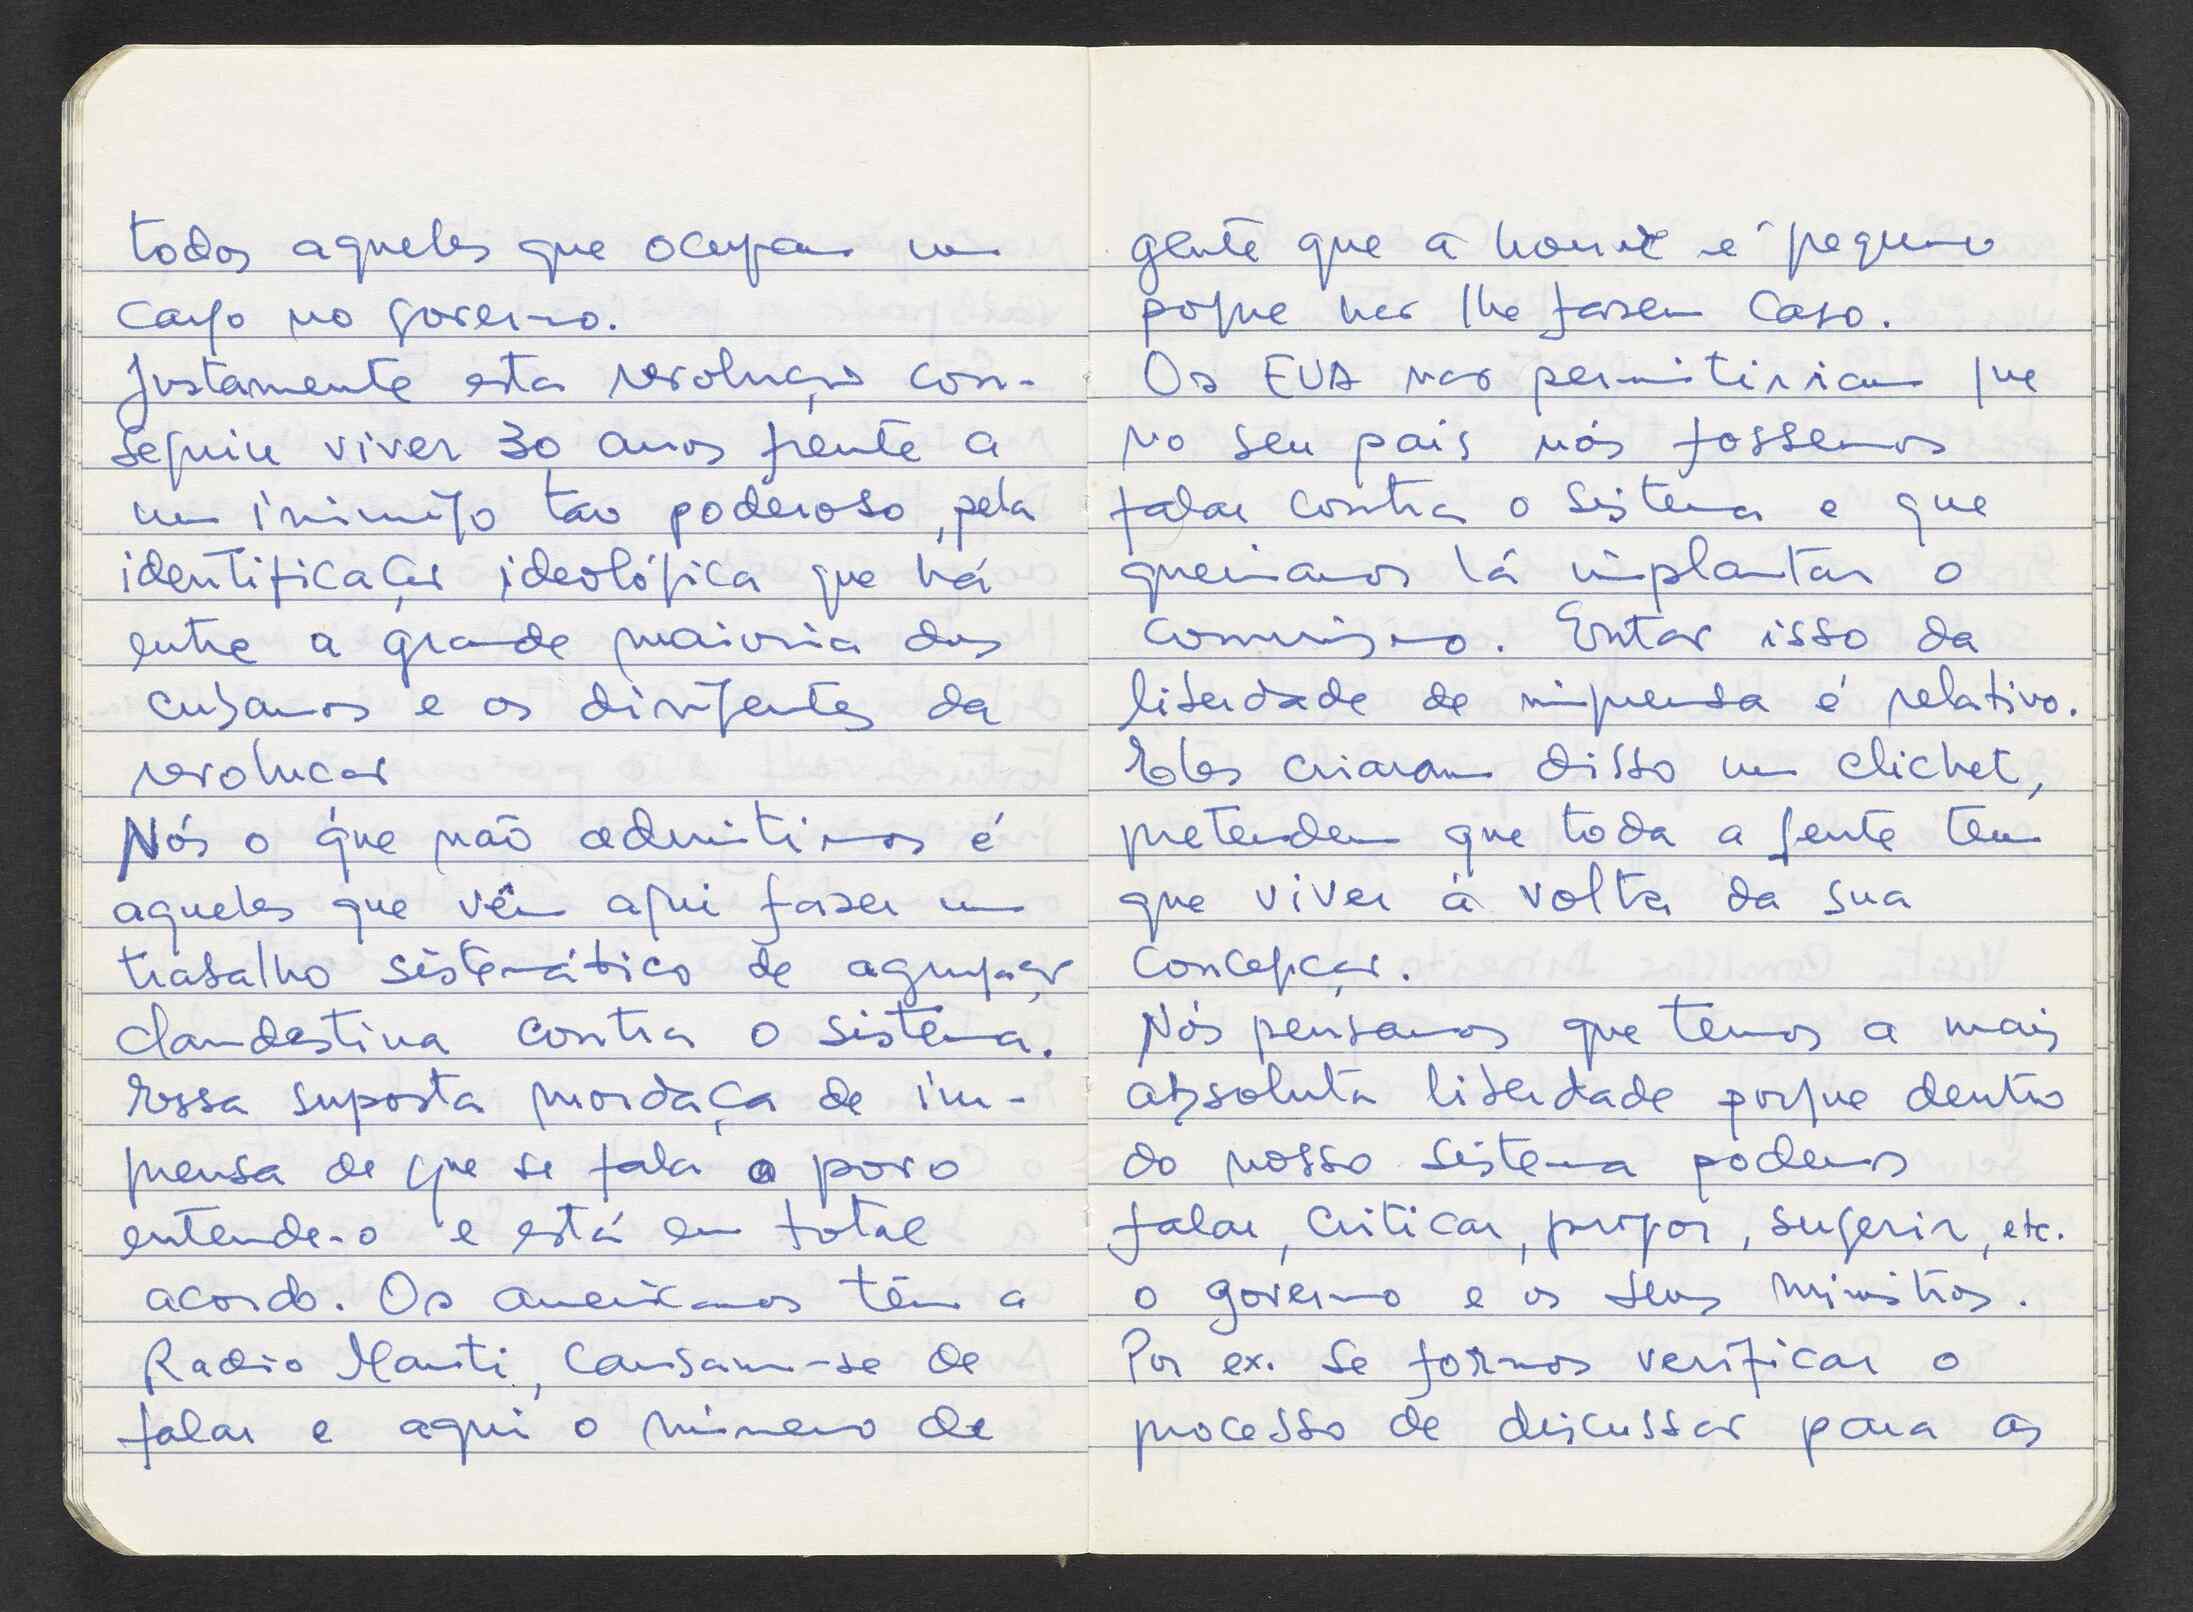 todos aqueles que ocupam um
cargo no governo.
Justamente esta revolução con-
seguiu viver 30 anos frente a
um inimigo tao poderoso, pela
identificação ideológica que há
entre a grande maioria dos
cubanos e os dirigentes da
revolucao
Nós o que não admitimos é
aqueles que vêm aqui fazer um
trabalho sistemático de agrupação
clandestina contra o sistema.
Essa suposta mordaça de im-
prensa de que se fala o povo
entende-o e está em total
acordo. Os americanos têm a
Radio Marti, cansam-se de
falar e aqui o número de
gente que a houve é pequeno
porque nao lhe fazem caso.
Os EUA nao permitiriam que
no seu pais nós fossemos
falar contra o sistema e que
queriamos lá implantar o
comunismo. Entao isso da
liberdade de imprensa é relativo.
Eles criaram disso um clichet,
pretendem que toda a gente tem
que viver à volta da sua
concepção.
Nós pensamos que temos a mais
absoluta liberdade porque dentro
do nosso sistema podemos
falar, criticar, propor, sugerir, etc.
o governo e os seus ministros.
Por ex. se formos verificar o
processo de discussao para as